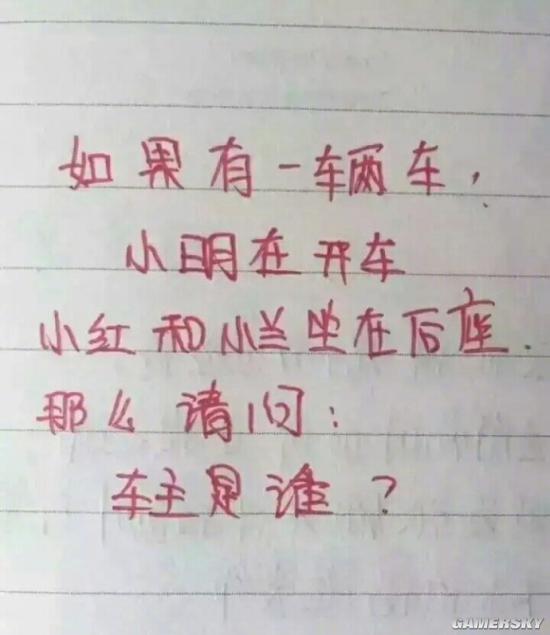 如果有一辆车，
小明在开车
小红和小兰坐在后座.
那么请问：
车主是谁？
GAMERSKY